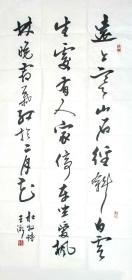 遠上寒山石徑斜白雲
生處有人家停車坐愛楓
林晚霜葉紅於二月花
杜牧詩